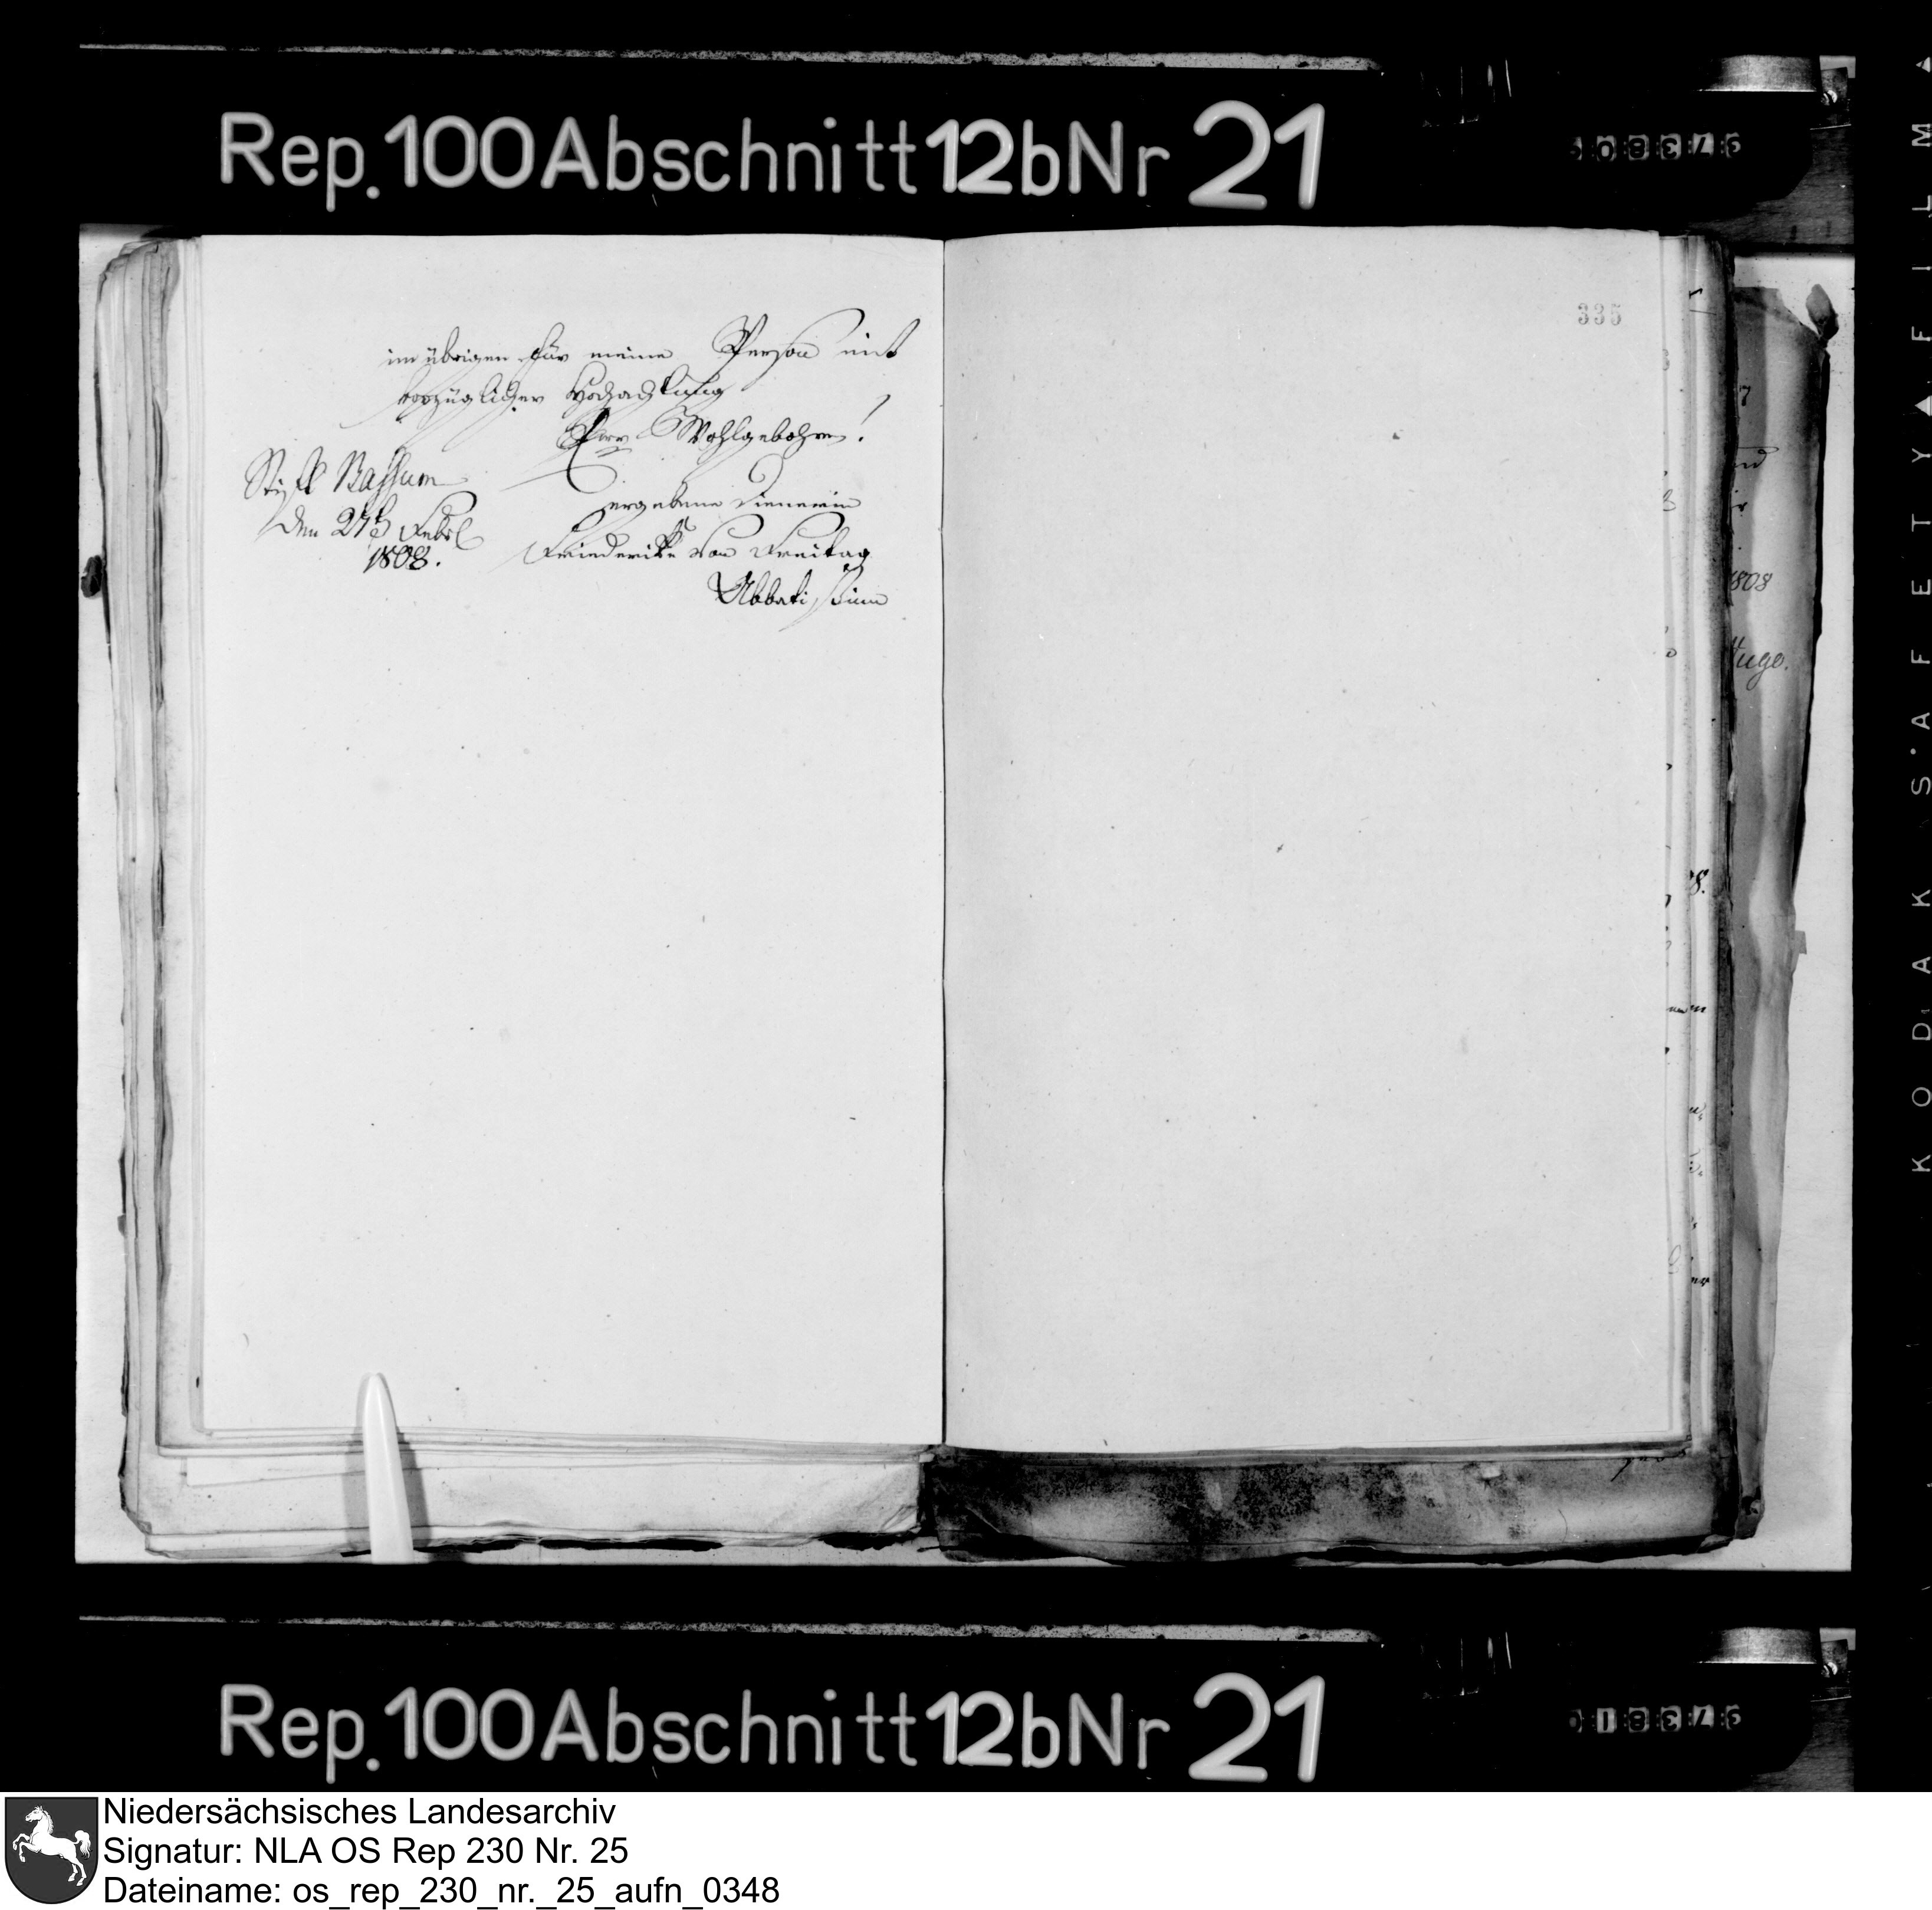 Rep. 100 Abschnitt 12b Nr 21
335
im übrigen für meine Person mit
vorzüglicher Hochachtung
Wohlgebohren!
Stift Bassum
den 27 Febr
1808.
ergebene Dienerin
Friederike von Freitag
Abbatissinn
1808
Hugo.
KODAK SAFETY FILM
Rep. 100 Abschnitt 12b Nr 21
Niedersächsisches Landesarchiv
Signatur: NLA OS Rep 230 Nr. 25
Dateiname: os_rep_230_nr._25_aufn_0348